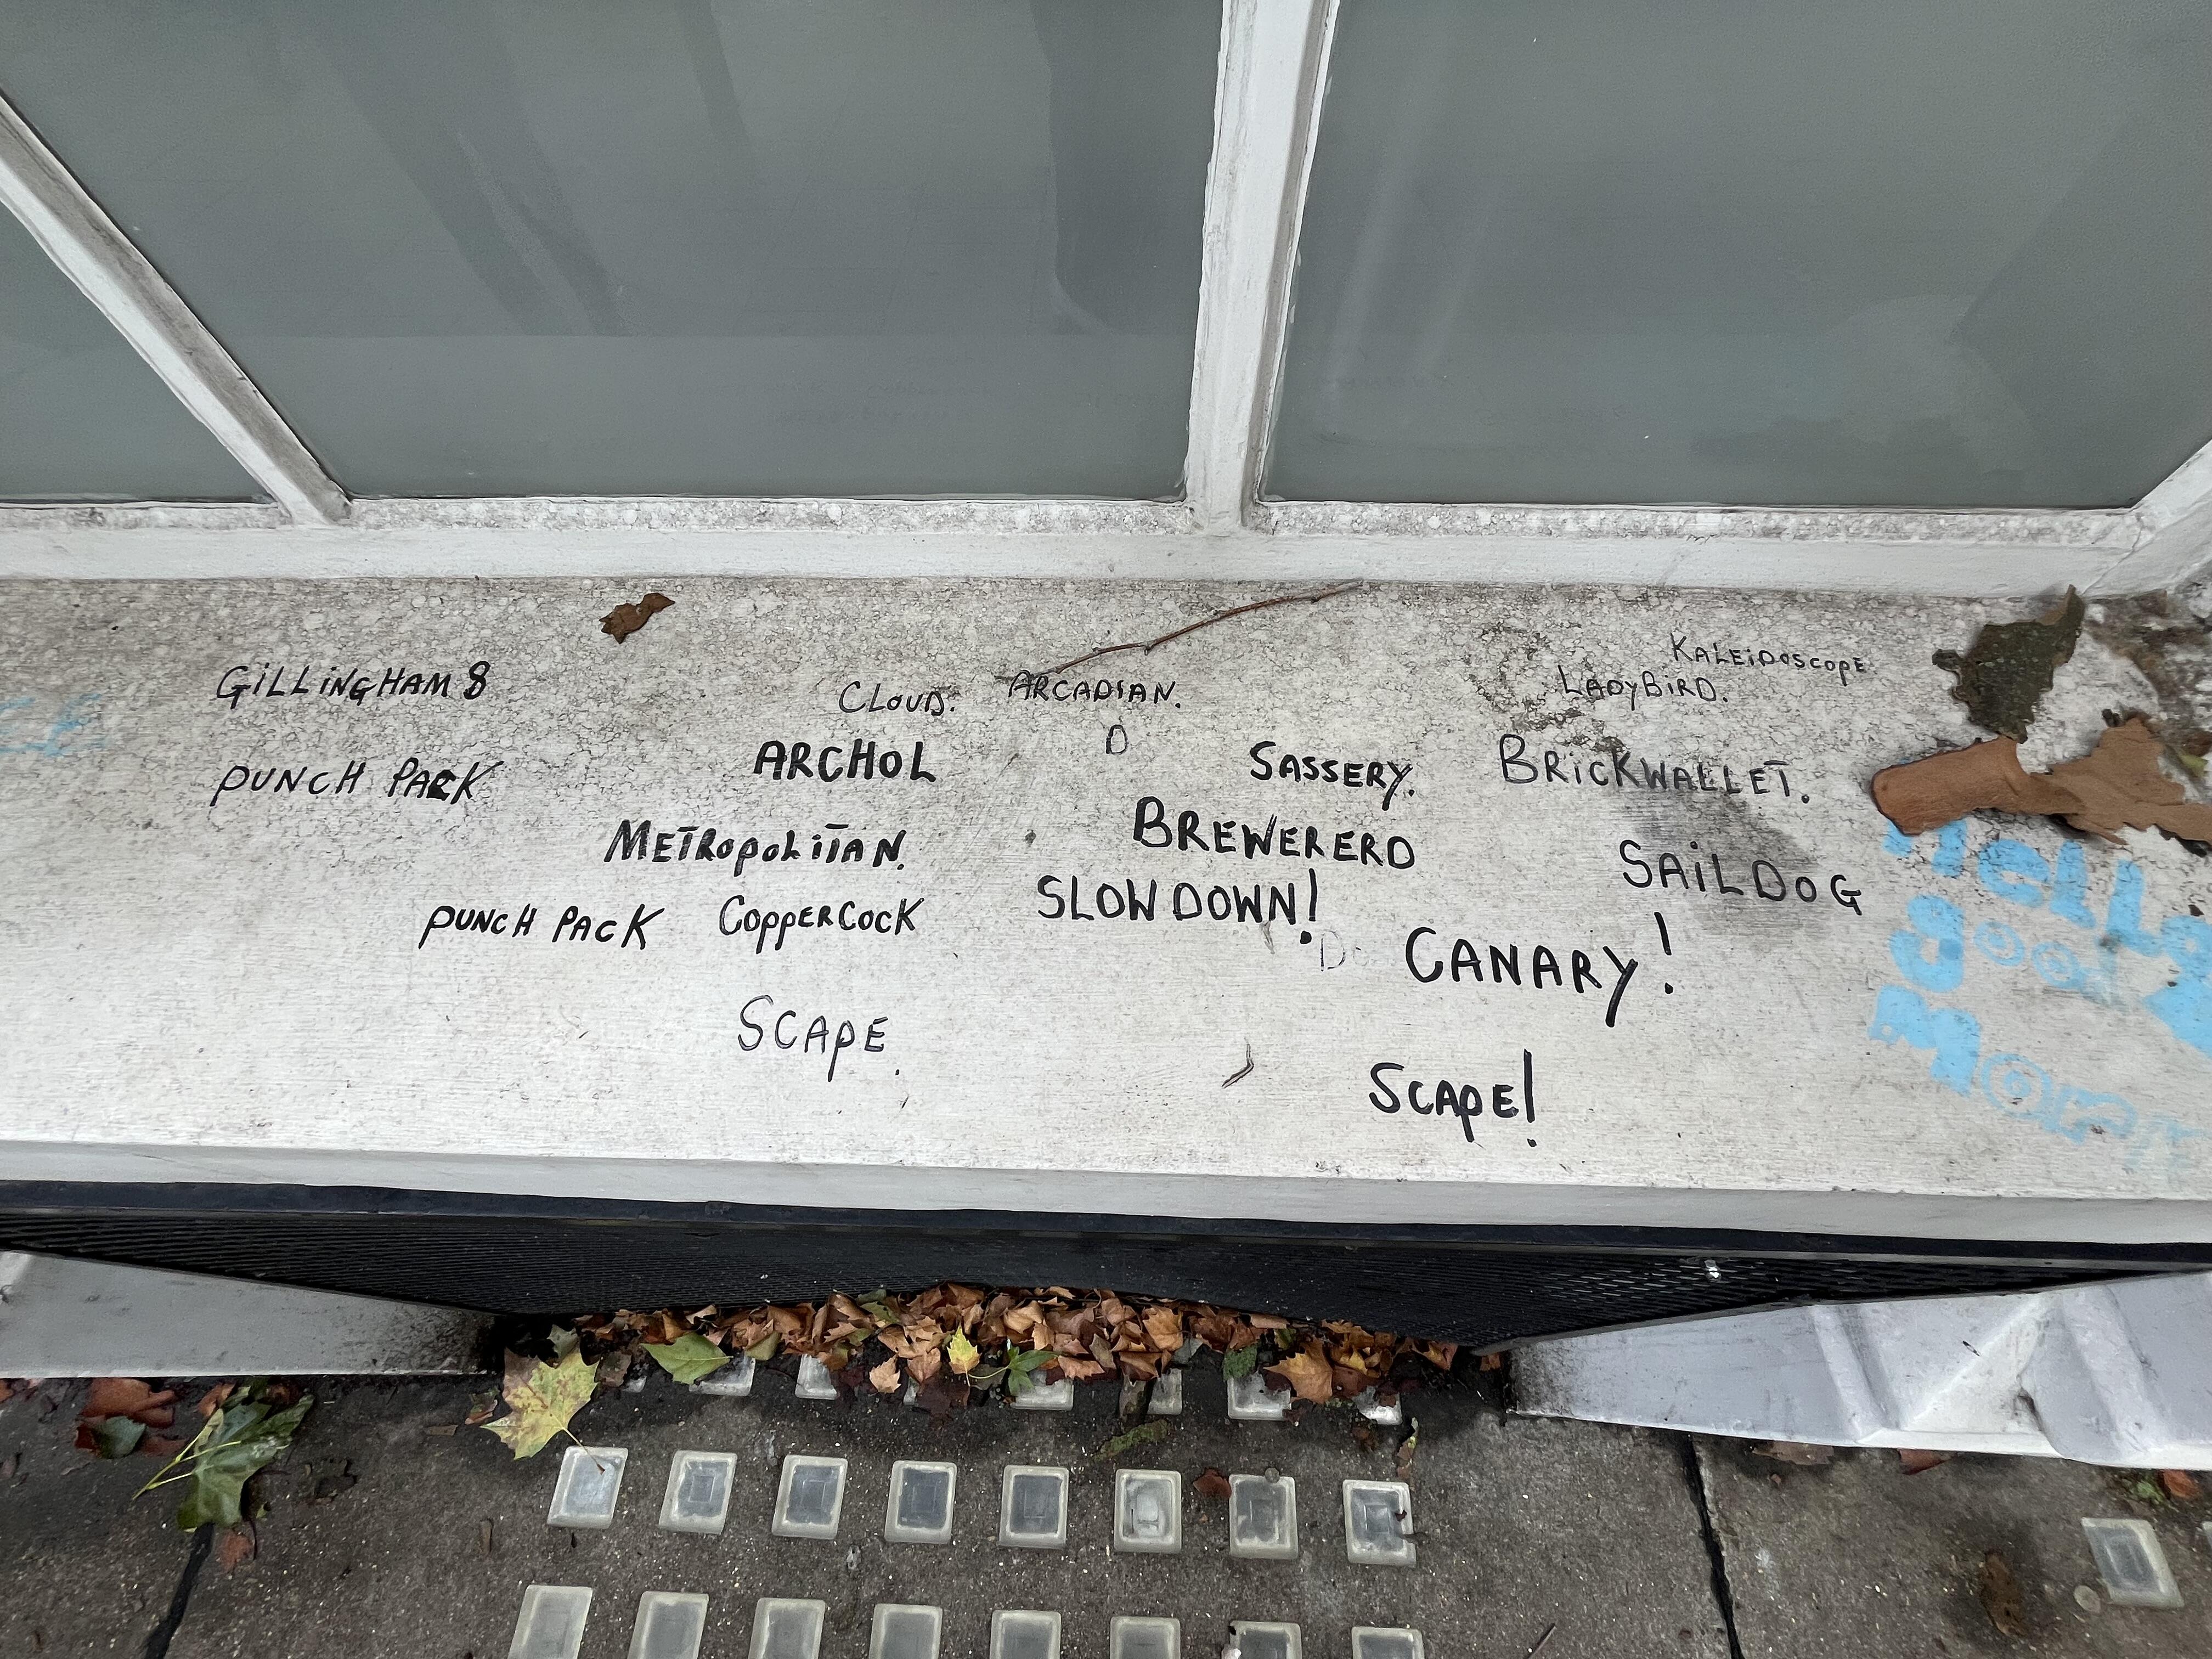 KALEiDoSCOPE
GiLLiNGHAM 8
CLOUD.
ARCADIAN.
LADyBiRD.
D
PUNCH PACK
ARCHOL
SASSERY.
BRiCKWALLET.
METROPOLITAN.
BREWERERD
SAiLDOG
PUNCH PACK
COPPERCOCK
SLOW DOWN!
CANARY!
SCAPE.
SCAPE!
Hello
good